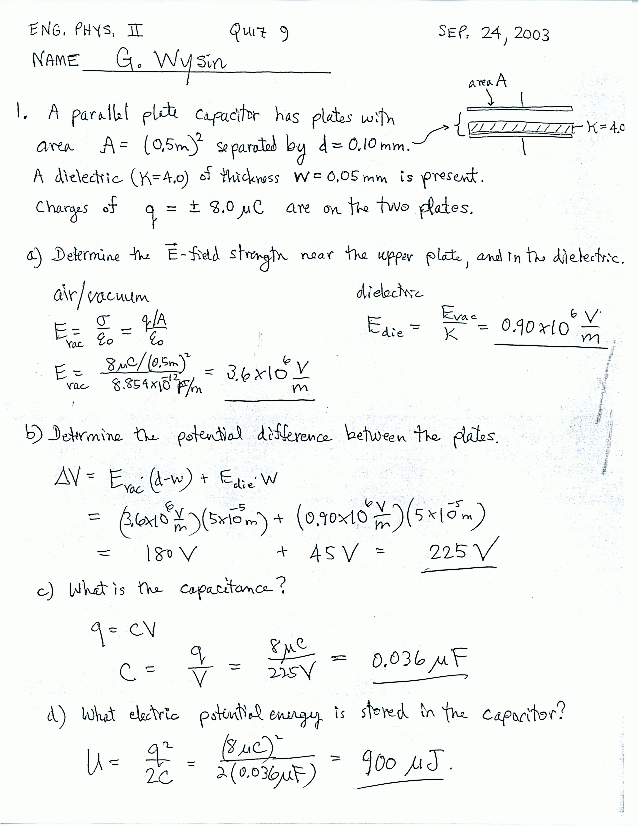 ENG. PHYS. II Quiz 9 SEP. 24, 2003
NAME G. Wysin
area A
1. A parallel plate capacitor has plates with
K=4.0
area A = (0.5m)² separated by d = 0.10 mm.
A dielectric (K=4.0) of thickness w = 0.05 mm is present.
Charges of q = ± 8.0 μC are on the two plates.
a) Determine the E⃗-field strength near the upper plate, and in the dielectric.
air/vacuum dielectric
E_vac = σ/ε₀ = (q/A)/ε₀ E_die = E_vac/K = 0.90×10⁶ V/m
E_vac = (8μC/(0.5m)²)/(8.854×10⁻¹² F/m) = 3.6×10⁶ V/m
b) Determine the potential difference between the plates.
ΔV = E_vac (d-w) + E_die w
= (3.6×10⁶ V/m)(5×10⁻⁵m) + (0.90×10⁶ V/m)(5×10⁻⁵m)
= 180 V + 45 V = 225 V
c) What is the capacitance?
q = CV
C = q/V = 8μC/225V = 0.036 μF
d) What electric potential energy is stored in the capacitor?
U = q²/2C = (8μC)²/2(0.036μF) = 900 μJ.